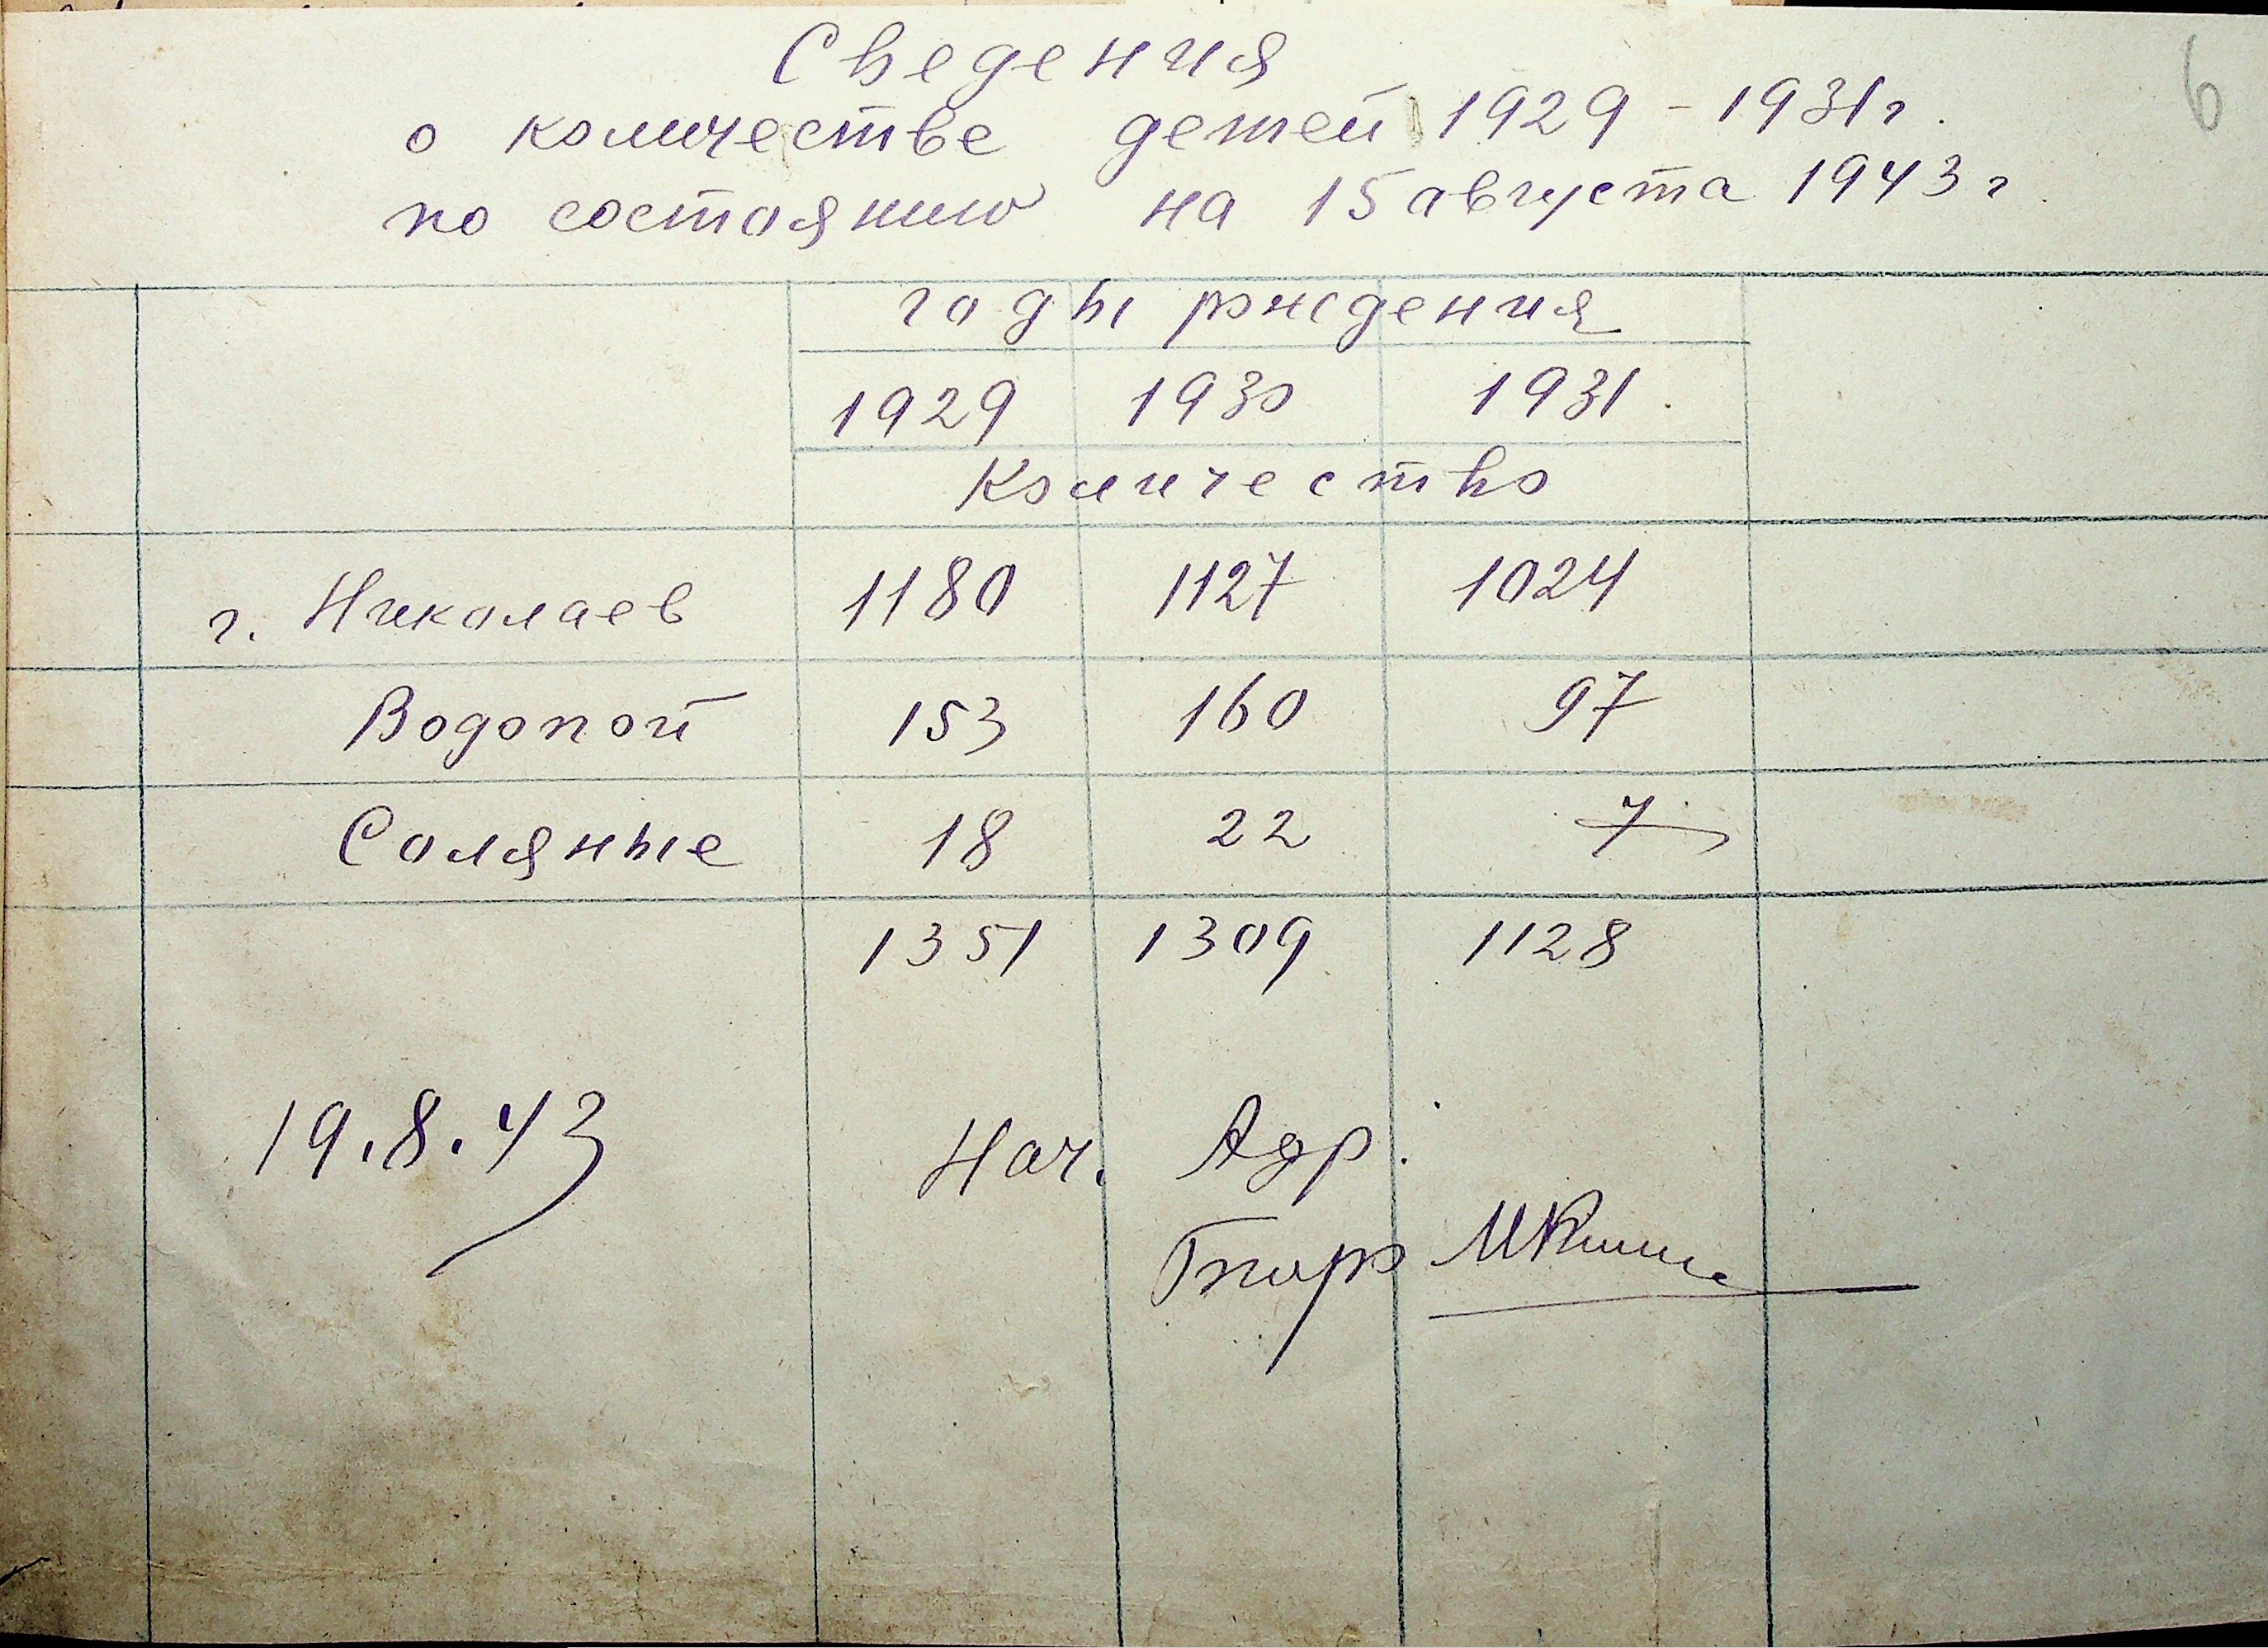 6
Сведения
о количестве детей 1929 - 1931г.
по состоянию на 15 августа 1943 г.
годы рождения
1929 1930 1931.
Количество
г. Николаев 1180 1127 1024
Водопой 153 160 97
Соляные 18 22 7
1351 1309 1128
19.8.43 Нач. Адр.